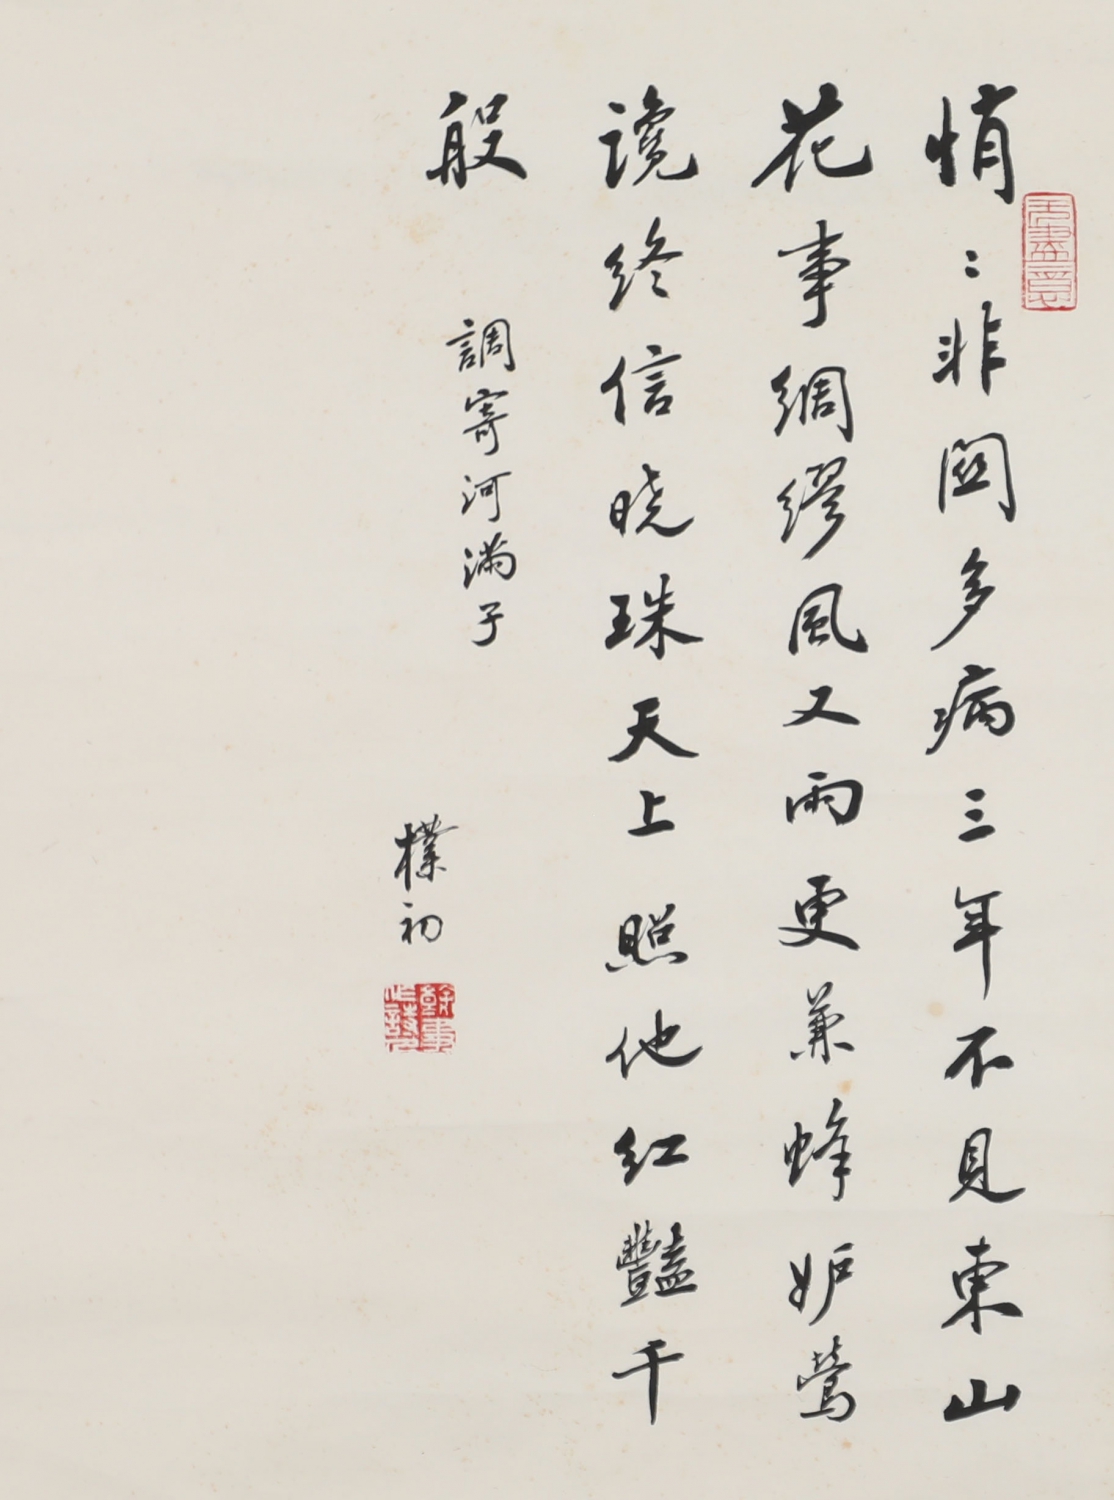 悄〻非関多病三年不見東山
花事綢繆風又雨更兼蜂妒鶯
讒終信晓珠天上照他红豔千
般
調寄河满子
樸初
無盡意